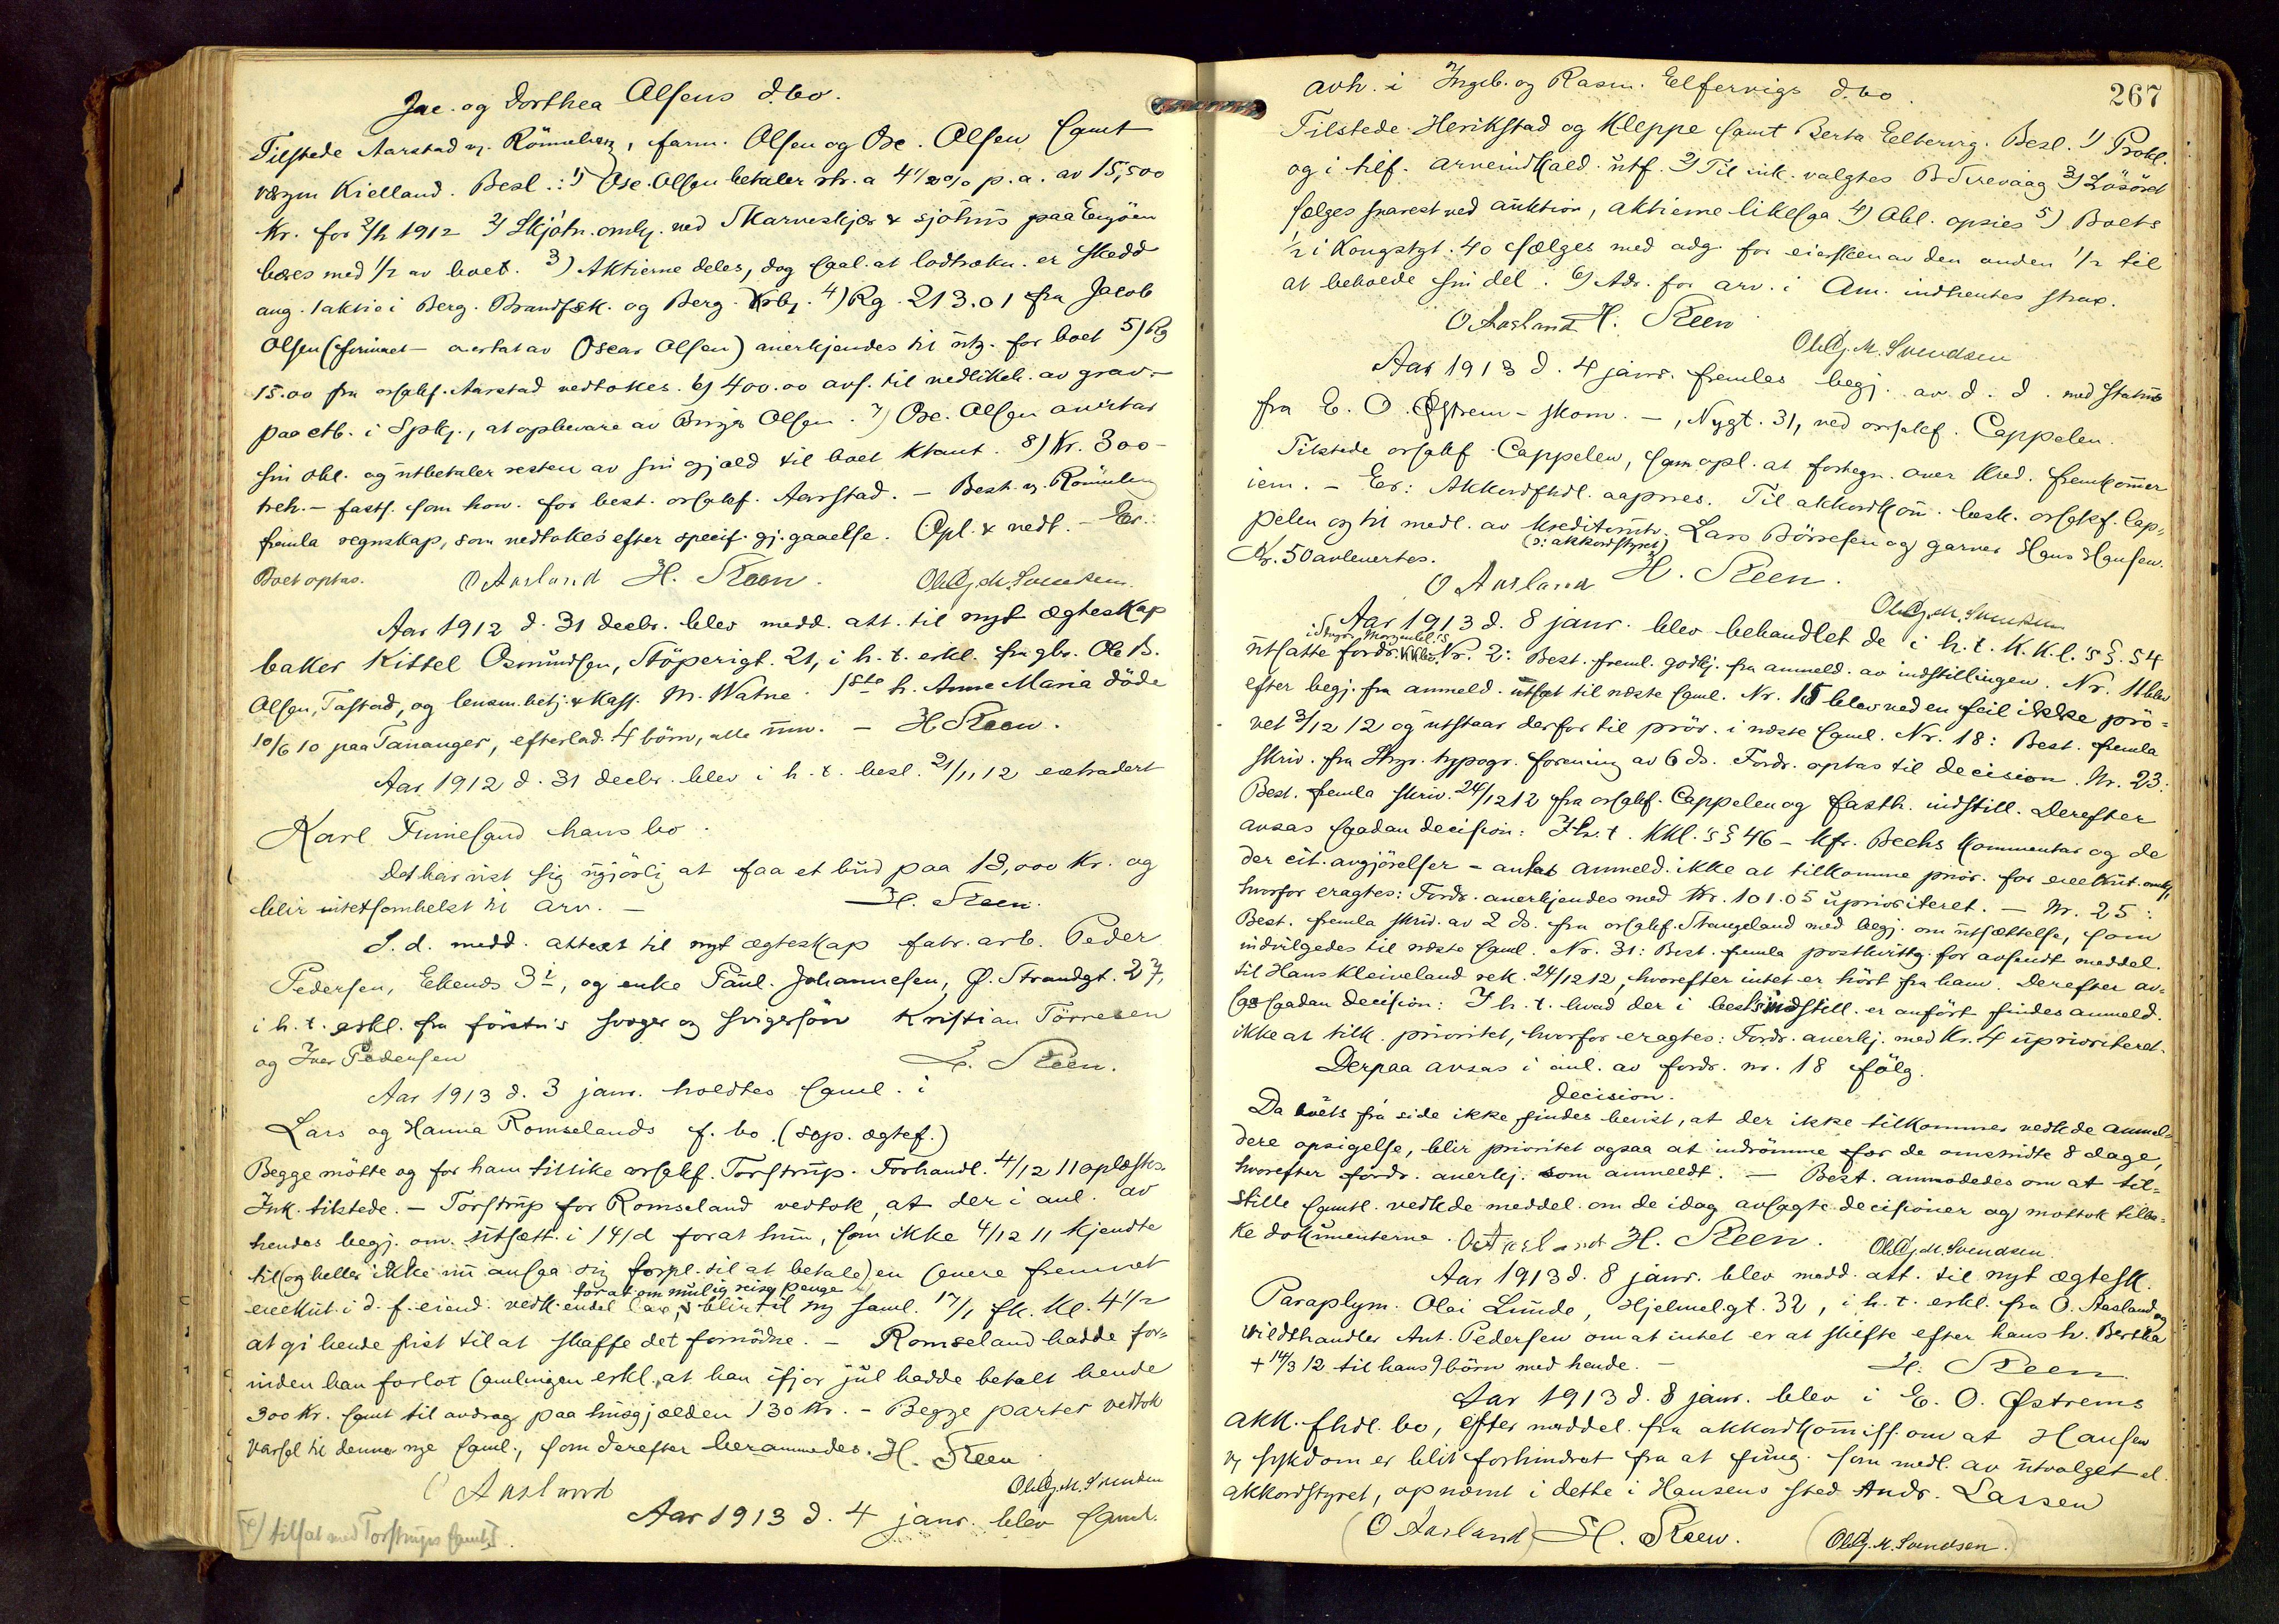 Jac. og Dorthea Olsens d.bo.
Tilstede Aarstad og Rönneberg, farm. Olsen og Osc. Olsen samt
vægm Kielland. Besl.: 1) Osc. Olsen betaler rtr. a 4½ % p.a. av 15,500
Kr. for 2/h 1912 2) Skjötn. omkj. ved Skarveskjær & sjöhus paa Engöen
bæres med ½ av boet. 3) Aktierne deles, dog saal. at lodtrækn. er skedd
ang. 1 aktie i Berg. Brandfsk. og Berg. Krbk. 4) Rg. 213.01 fra Jacob
Olsen (firmaet overtat av Oscar Olsen) anerkjendes til utg. for boet 5) Rg
15.00 fra orsakf. Aarstad vedtokes. 6) 400.00 avs. til vedlikeh. av grav-
paa etb. i Spkj., at opbevare av Birger Olsen. 7) Osc. Olsen overtar
sin obl. og utbetaler resten av sin gjæld til boet ktant. 8) Kr. 300-
treh. - fasts. som hon. for best. orsakf. Aarstad. - Best. og Rönneberg
fremla regnskap, som vedtokes efter specif. gj.gaaelse. Opl. & vedt. - Er:
Boet optas. O Aarland H. Steen. Ole Gj. M. Svendsen.
Aar 1912 d. 31 decbr. blev medd. att. til nyt ægteskap
baker Kittel Osmundsen, Stöperigt. 21, i h. t. erkl. fra gbr. Ole B.
Olsen, Tastad, og lensm.betj. & Kass. M. Watne. 1ste h. Anne Maria döde
10/6 10 paa Tananger, efterlad. 4 börn, alle mm. - H Steen.
Aar 1912 d. 31 decbr. blev i h. t. besl. 21/11 12 extradert
Karl Finnesand hans bo.
Det har vist sig ugjörlig at faa et bud paa 13,000 Kr. og
blir intetsomhelst til arv. - H. Steen.
S. d. medd. attest til nyt ægteskap fabr. arb. Peder
Pedersen, Ekends 3 I, og enke Paul. Johannesen, Ø. Strandgt. 27,
i h. t. erkl. fra förstn's svoger og svigersön Kristian Törresen
og Iver Pedersen H. Steen.
Aar 1913 d. 3 janr. holdtes saml. i
Lars og Hanna Romselands f. bo. (sep. ægtef.)
Begge mötte og for ham tillike orsakf. Torstrup. Forhandl. 4/12 11 oplæstes.
Ink. tilstede. - Torstrup for Romseland vedtok, at der i anl. av
hendes begj. om utsætt. i 14 d forat hun, som ikke 4/12 11 kjendte
til (og heller ikke nu ansaa sig forpl. til at betale) en senere fremmet
forat om mulig reise penge
exekut. i d. f. eiend. vedk. endel lax, blir til ny saml. 17/1 fk. Kl. 4½
at gi hende frist til at skaffe det fornödne. - Romseland hadde for-
inden han forlot samlingen erkl. at han ifjor jul hadde betalt hende
300 Kr. samt til avdrag paa husgjælden 130 Kr. - Begge parter vedtok
varsel til denne nye saml., som derefter berammedes. H. Steen
O Aarland Ole Gj. M. Svendsen
Aar 1913 d. 4 janr. blev saml.
tilsat med Torstrups samt.
267
avh. i Ingeb. og Rasm. Elfervigs d.bo.
Tilstede Herikstad og Kleppe samt Berta Eltervig. Besl. 1) Prokl.
og i tilf. arveindkald. utf. 2) Til ink. valgtes B. Tirevaag 3) Lösöret
sælges snarest ved auktion, aktierne likesaa 4) Obl. opsies 5) Boets
½ i Kongsgt. 40 sælges med adg. for eiersken av den anden ½ til
at beholde sin del. 6) Adr. for arv. i Am. indhentes strax.
O Aarland H. Steen Ole Gj. M. Svendsen
Aar 1913 d. 4 janr. fremles begj. av d. d. med status
fra E. O. Østrem - skom. -, Nygt. 31, ved orsakf. Cappelen.
Tilstede orsakf. Cappelen, som opl. at fortegn. over Kred. fremkommer
iem. - Er: Akkordfhdl. aapnes. Til akkordkom. besk. orsakf. Cap-
pelen og til medl. av kreditorutv. (ɔ: akkordstyret) Lars Börresen og garver Hans Hansen.
Kr. 50 avlevertes.
O Aarland H. Steen. Ole Gj. M. Svendsen
Aar 1913 d. 8 janr. blev behandlet de i h. t. K.K.l.'s §. 54
i Stvgr. Morgenbl.'s
utsatte fordr. KKbo. Nr. 2: Best. freml. godkj. fra anmeld. av indstillingen. Nr. 11 blev
efter begj. fra anmeld. utsat til næste saml. Nr. 15 blev ved en feil ikke prö-
vet 3/12 12 og utstaar derfor til pröv. i næste saml. Nr. 18: Best. fremla
skriv. fra Stvgr. typogr. forening av 6 ds. Fordr. optas til decision. Nr. 23:
Best. fremla skriv. 24/12 12 fra orsakf. Cappelen og fasth. indstill. Derefter
avsas saadan decision: I h. t. KKl.'s § 46 - kfr. Beehs kommentar og de
der cit. avgjörelser - antas anmeld. ikke at tilkomme prior. for exekut. omkj.
hvorfor eragtes: Fordr. anerkjendes med Kr. 101.05 uprioriteret. - Nr. 25:
Best. fremla skriv. av 2 ds. fra orsakf. Stangeland med begj. om utsættelse, som
indvilgedes til næste saml. Nr. 31: Best. fremla postkvittg. for avsendt meddel.
til Hans Kleiveland rek. 24/12 12, hvorefter intet er hört fra ham. Derefter av-
sas saadan decision: I h. t. hvad der i best's indstill. er anfört findes anmeld.
ikke at tilk. prioritet, hvorfor eragtes: Fordr. anerkj. med Kr. 4 uprioriteret.
Derpaa avsas i anl. av fordr. nr. 18 fölg.
Decision.
Da boets fra side ikke findes bevist, at der ikke tilkommer vedkde anmel-
dere opsigelse, blir prioritet ogsaa at indrömme for de omstridte 8 dage,
hvorefter fordr. anerkj. som anmeldt. - Best. anmodedes om at til-
stille samtl. vedkde meddel. om de idag avsagte decisioner og mottok tilba-
ke dokumenterne. O Aarland H. Steen. Ole Gj. M. Svendsen.
Aar 1913 d. 8 janr. blev medd. att. til nyt ægtesk.
Paraplym. Olai Lunde, Hjelmel.gt. 32, i h. t. erkl. fra O. Aasland og
vildthandler Ant. Pedersen om at intet er at skifte efter hans h. Bertha
+ 14/3 12 til hans 9 börn med hende. - H. Steen
Aar 1913 d. 8 janr. blev i E. O. Østrems
akk. fhdl. bo, efter meddel. fra akkordkommiss. om at Hansen
vg sykdom er blit forhindret fra at fung. som medl. av utvalget el.
akkordstyret, opnævnt i dette i Hansens sted Andr. Lassen
(O Aarland) H. Steen. (Ole Gj. M. Svendsen.)